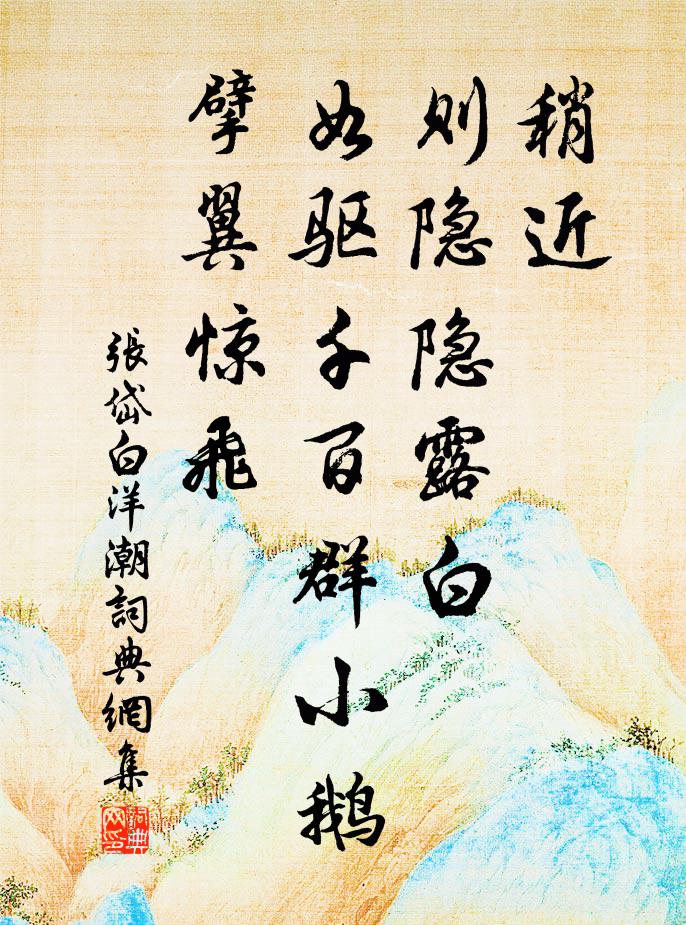 稍近
则隐隐露白
如驱千百群小鹅
擘翼惊飛
張岱白洋潮詞典網集
詞典
网印